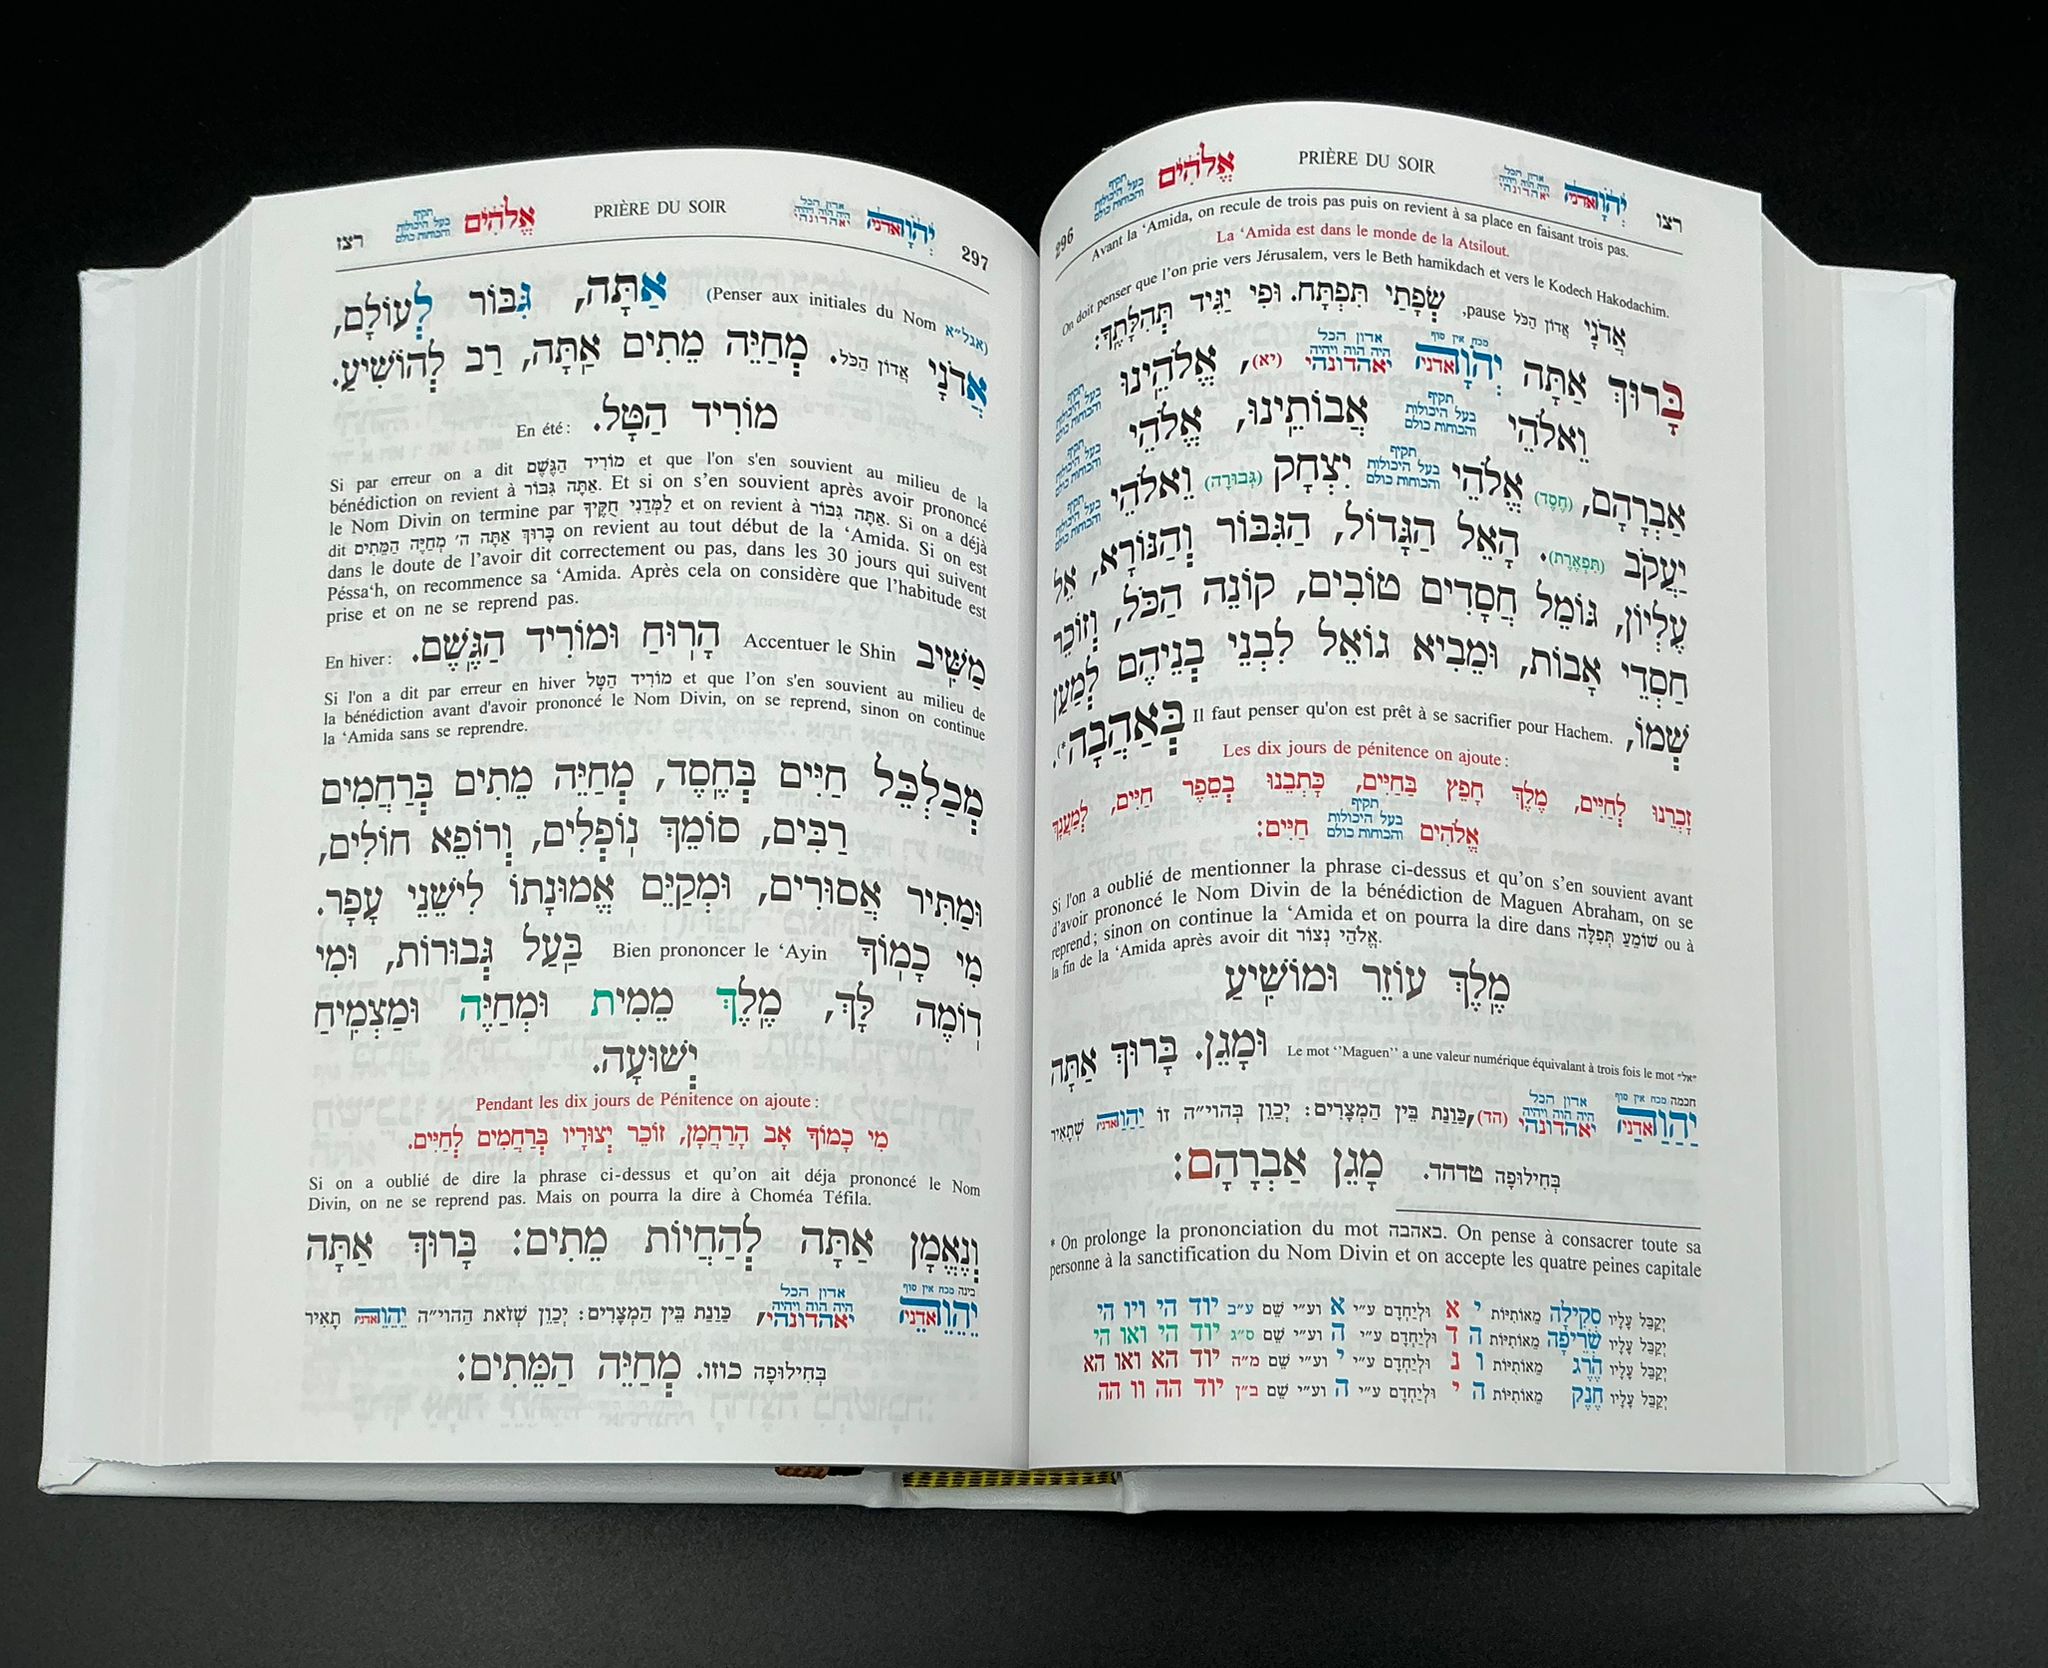 296 אֱלֹהִים תקיף בעל היכולות והכוחות כולם PRIÈRE DU SOIR אדון הכל היה הוה ויהיה יאהדונהי יְהֹוָה אדני רצו
Avant la ‘Amida, on recule de trois pas puis on revient à sa place en faisant trois pas.
La ‘Amida est dans le monde de la Atsilout.
On doit penser que l’on prie vers Jérusalem, vers le Beth hamikdach et vers le Kodech Hakodachim.
אֲדֹנָי אֲדוֹן הַכֹּל pause, שְׂפָתַי תִּפְתָּח. וּפִי יַגִּיד תְּהִלָּתֶךָ:
בָּרוּךְ אַתָּה יְהֹוָה אדני מכח אין סוף אדון הכל היה הוה ויהיה יאהדונהי (יא), אֱלֹהֵינוּ תקיף בעל היכולות והכוחות כולם
וֵאלֹהֵי תקיף בעל היכולות והכוחות כולם אֲבוֹתֵינוּ, אֱלֹהֵי תקיף בעל היכולות והכוחות כולם
אַבְרָהָם, (חֶסֶד) אֱלֹהֵי תקיף בעל היכולות והכוחות כולם יִצְחָק (גְּבוּרָה) וֵאלֹהֵי תקיף בעל היכולות והכוחות כולם
יַעֲקֹב (תִּפְאֶרֶת). הָאֵל הַגָּדוֹל, הַגִּבּוֹר וְהַנּוֹרָא, אֵל
עֶלְיוֹן, גּוֹמֵל חֲסָדִים טוֹבִים, קוֹנֵה הַכֹּל, וְזוֹכֵר
חַסְדֵי אָבוֹת, וּמֵבִיא גוֹאֵל לִבְנֵי בְנֵיהֶם לְמַעַן
שְׁמוֹ, Il faut penser qu'on est prêt à se sacrifier pour Hachem. בְּאַהֲבָה(*).
Les dix jours de pénitence on ajoute :
זָכְרֵנוּ לְחַיִּים, מֶלֶךְ חָפֵץ בַּחַיִּים, כָּתְבֵנוּ בְּסֵפֶר חַיִּים, לְמַעֲנָךְ
אֱלֹהִים תקיף בעל היכולות והכוחות כולם חַיִּים:
Si l'on a oublié de mentionner la phrase ci-dessus et qu’on s’en souvient avant
d’avoir prononcé le Nom Divin de la bénédiction de Maguen Abraham, on se
reprend ; sinon on continue la ‘Amida et on pourra la dire dans שׁוֹמֵעַ תְּפִלָּה ou à
la fin de la ‘Amida après avoir dit אֱלֹהַי נְצוֹר.
מֶלֶךְ עוֹזֵר וּמוֹשִׁיעַ
וּמָגֵן. Le mot ‘‘Maguen’’ a une valeur numérique équivalant à trois fois le mot "אל" בָּרוּךְ אַתָּה
חכמה מכח אין סוף יַהַוַהַ אדני אדון הכל היה הוה ויהיה יאהדונהי (הד), כַּוָּנַת בֵּין הַמְּצָרִים: יְכַוֵּן בְּהוי״ה זוֹ יַהַוַהַ אדני שֶׁתָּאִיר
בְּחִילוּפָהּ טדהד. מָגֵן אַבְרָהָם:
* On prolonge la prononciation du mot באהבה. On pense à consacrer toute sa
personne à la sanctification du Nom Divin et on accepte les quatre peines capitale
יְקַבֵּל עָלָיו סְקִילָה מֵאוֹתִיּוֹת י א וּלְיַחֲדָם ע״י א וע״י שֵׁם ע״ב יוד הי ויו הי
יְקַבֵּל עָלָיו שְׂרֵיפָה מֵאוֹתִיּוֹת ה ד וּלְיַחֲדָם ע״י ה וע״י שֵׁם ס״ג יוד הי ואו הי
יְקַבֵּל עָלָיו הֶרֶג מֵאוֹתִיּוֹת ו נ וּלְיַחֲדָם ע״י י וע״י שֵׁם מ״ה יוד הא ואו הא
יְקַבֵּל עָלָיו חֶנֶק מֵאוֹתִיּוֹת ה י וּלְיַחֲדָם ע״י ה וע״י שֵׁם ב״ן יוד הה וו הה
רצז תקיף בעל היכולות והכוחות כולם אֱלֹהִים PRIÈRE DU SOIR אדון הכל היה הוה ויהיה יאהדונהי יְהֹוָה אדני 297
(Penser aux initiales du Nom אַתָּה, גִּבּוֹר לְעוֹלָם,
(אגל״א) אֲדֹנָי אֲדוֹן הַכֹּל. מְחַיֵּה מֵתִים אַתָּה, רַב לְהוֹשִׁיעַ.
En été : מוֹרִיד הַטָּל.
Si par erreur on a dit מוֹרִיד הַגֶּשֶׁם et que l'on s'en souvient au milieu de la
bénédiction on revient à אַתָּה גִּבּוֹר. Et si on s’en souvient après avoir prononcé
le Nom Divin on termine par לַמְּדֵנִי חֻקֶּיךָ et on revient à אַתָּה גִּבּוֹר. Si on a déjà
dit בָּרוּךְ אַתָּה ה׳ מְחַיֵּה הַמֵּתִים on revient au tout début de la ‘Amida. Si on est
dans le doute de l’avoir dit correctement ou pas, dans les 30 jours qui suivent
Péssa‘h, on recommence sa ‘Amida. Après cela on considère que l’habitude est
prise et on ne se reprend pas.
En hiver : מַשִּׁיב Accentuer le Shin הָרוּחַ וּמוֹרִיד הַגֶּשֶׁם.
Si l'on a dit par erreur en hiver מוֹרִיד הַטָּל et que l’on s'en souvient au milieu de
la bénédiction avant d'avoir prononcé le Nom Divin, on se reprend, sinon on continue
la ‘Amida sans se reprendre.
מְכַלְכֵּל חַיִּים בְּחֶסֶד, מְחַיֵּה מֵתִים בְּרַחֲמִים
רַבִּים, סוֹמֵךְ נוֹפְלִים, וְרוֹפֵא חוֹלִים,
וּמַתִּיר אֲסוּרִים, וּמְקַיֵּם אֱמוּנָתוֹ לִישֵׁנֵי עָפָר.
מִי כָמוֹךָ Bien prononcer le ‘Ayin בַּעַל גְּבוּרוֹת, וּמִי
דוֹמֶה לָּךְ, מֶלֶךְ מֵמִית וּמְחַיֶּה וּמַצְמִיחַ
יְשׁוּעָה.
Pendant les dix jours de Pénitence on ajoute :
מִי כָמוֹךָ אָב הָרַחֲמָן, זוֹכֵר יְצוּרָיו בְּרַחֲמִים לְחַיִּים.
Si on a oublié de dire la phrase ci-dessus et qu’on ait déja prononcé le Nom
Divin, on ne se reprend pas. Mais on pourra la dire à Choméa Téfila.
וְנֶאֱמָן אַתָּה לְהַחֲיוֹת מֵתִים: בָּרוּךְ אַתָּה
בינה מכח אין סוף יֵהֵוֵהֵ אדני אדון הכל היה הוה ויהיה יאהדונהי, כַּוָּנַת בֵּין הַמְּצָרִים: יְכַוֵּן שֶׁזֹּאת הַהוי״ה יֵהֵוֵהֵ אדני תָּאִיר
בְּחִילוּפָהּ כוזו. מְחַיֵּה הַמֵּתִים: